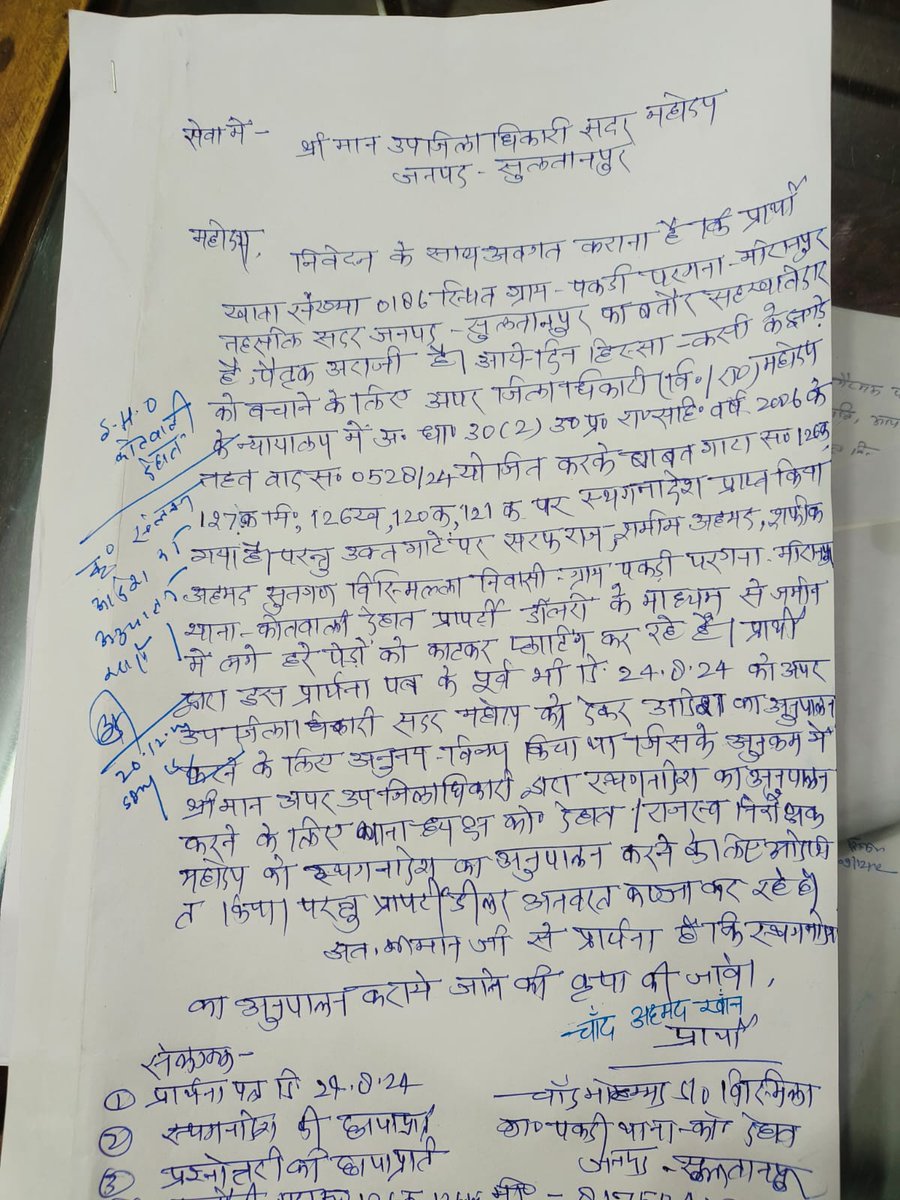 सेवा में -
श्री मान उपजिलाधिकारी सदर महोदय
जनपद - सुलतानपुर
महोदय,
निवेदन के साथ अवगत कराना है कि प्रार्थी
खाता संख्या 0186 स्थित ग्राम - पकडी परगना - मीरानपुर
तहसील सदर जनपद - सुलतानपुर का बतौर सहखातेदार
है, पैतृक अराजी है। आये-दिन हिस्सा - कसी के झगड़े
को बचाने के लिए अपर जिलाधिकारी (वि०/रा०) महोदय
के न्यायालय में अ० धा० 30(2) उ० प्र० रा० सहि० वर्ष 2006 के
तहत वाद स० 0528/24 योजित करके बाबत गाटा स० 126क,
127क मि०, 126ख, 120क, 121 क पर स्थगनादेश प्राप्त किया
गया है। परन्तु उक्त गाटे पर सरफराज, शमीम अहमद, शफीक
अहमद सुतगण विस्मिल्ला निवासी - ग्राम पकडी परगना - मीरानपुर
थाना - कोतवाली देहात प्रापर्टी डीलरो के माध्यम से जमीन
में लगे हरे पेड़ो को काटकर प्लाटिंग कर रहे है। प्रार्थी
द्वारा इस प्रार्थना पत्र के पूर्व भी दि० 24.8.24 को अपर
उप जिलाधिकारी सदर महोदय को देकर आदेश का अनुपालन
करने के लिए अनुनय - विनय किया था जिसके अनुक्रम में
श्री मान अपर उप जिलाधिकारी द्वारा स्थगनादेश का अनुपालन
करने के लिए थानाध्यक्ष को० देहात / राजस्व निरीक्षक
महोदय को स्थगनादेश का अनुपालन करने के लिए आदेशि
त किया। परन्तु प्रापर्टी डीलर अनवरत कब्जा कर रहे है।
अत. श्रीमान जी से प्रार्थना है कि स्थगनादेश
का अनुपालन कराये जाने की कृपा की जावे।
चाँद अहमद खान
प्रार्थी
S.H.O
कोतवाली
देहात
आदेश का
अनुपालन
20.12.
संलग्नक -
① प्रार्थना पत्र दि 24.8.24
② स्थगनादेश की छायाप्रति
③ प्रश्नोत्तरी की छायाप्रति
चाँद मोहम्मद S/० विस्मिल्ला
ग्रा० पकडी थाना - को० देहात
जनपद - सुलतानपुर